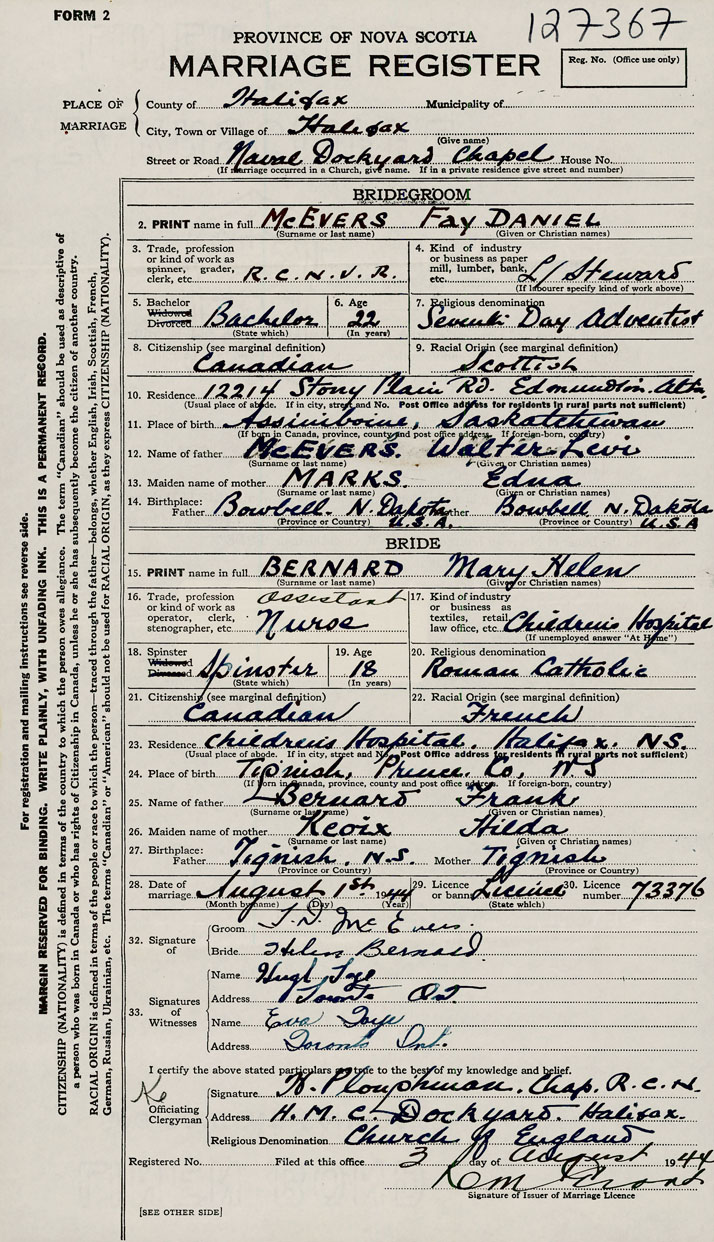 FORM 2
127367
PROVINCE OF NOVA SCOTIA
MARRIAGE REGISTER
Reg. No. (Office use only)
PLACE OF MARRIAGE
County of Halifax Municipality of
City, Town or Village of Halifax
(Give name)
Street or Road Naval Dockyard Chapel House No.
(If marriage occurred in a Church, give name. If in a private residence give street and number)
BRIDEGROOM
2. PRINT name in full McEVERS Fay DANIEL
(Surname or last name) (Given or Christian names)
3. Trade, profession or kind of work as spinner, grader, clerk, etc. R.C.N.V.R.
4. Kind of industry or business as paper mill, lumber, bank, etc. L/ Steward
(If labourer specify kind of work above)
5. Bachelor Widowed Divorced Bachelor
(State which)
6. Age 22
(In years)
7. Religious denomination
Seventh Day Adventist
8. Citizenship (see marginal definition)
Canadian
9. Racial Origin (see marginal definition)
Scottish
10. Residence 12214 Stony Plain Rd. Edmundton. Alta.
(Usual place of abode. If in city, street and No. Post Office address for residents in rural parts not sufficient)
11. Place of birth Assiniboine, Saskatchewan
(If born in Canada, province, county and post office address. If foreign-born, country)
12. Name of father McEVERS. Walter Levi
(Surname or last name) (Given or Christian names)
13. Maiden name of mother MARKS. Edna
(Surname or last name) (Given or Christian names)
14. Birthplace: Father Bowbell. N. Dakota U.S.A. Mother Bowbell N. Dakota U.S.A
(Province or Country) (Province or Country)
BRIDE
15. PRINT name in full BERNARD Mary Helen
(Surname or last name) (Given or Christian names)
16. Trade, profession or kind of work as operator, clerk, stenographer, etc. Assistant Nurse
17. Kind of industry or business as textiles, retail, law office, etc. Children's Hospital
(If unemployed answer "At Home")
18. Spinster Widowed Divorced Spinster
(State which)
19. Age 18
(In years)
20. Religious denomination
Roman Catholic
21. Citizenship (see marginal definition)
Canadian
22. Racial Origin (see marginal definition)
French
23. Residence Children's Hospital, Halifax. N.S.
(Usual place of abode. If in city, street and No. Post Office address for residents in rural parts not sufficient)
24. Place of birth Tignish, Prince. Co, N.S
(If born in Canada, province, county and post office address. If foreign-born, country)
25. Name of father Bernard Frank
(Surname or last name) (Given or Christian names)
26. Maiden name of mother Keoix Hilda
(Surname or last name) (Given or Christian names)
27. Birthplace: Father Tignish, N.S. Mother Tignish
(Province or Country) (Province or Country)
28. Date of marriage August 1st 1944
(Month by name) (Day) (Year)
29. Licence or banns Licence
(State which)
30. Licence number 73376
32. Signature of
Groom F.D. McEvers.
Bride Helen Bernard
33. Signatures of Witnesses
Name Hugh Faye
Address Toronto Ont
Name Eva Faye
Address Toronto Ont.
I certify the above stated particulars are true to the best of my knowledge and belief.
Officiating Clergyman
Signature Ploughman. Chap. R.C.N.
Address H.M.C. Dockyard. Halifax.
Religious Denomination Church of England
Registered No. Filed at this office 3 day of August 1944
Signature of Issuer of Marriage Licence
[SEE OTHER SIDE]
For registration and mailing instructions see reverse side.
MARGIN RESERVED FOR BINDING. WRITE PLAINLY, WITH UNFADING INK. THIS IS A PERMANENT RECORD.
CITIZENSHIP (NATIONALITY) is defined in terms of the country to which the person owes allegiance. The term "Canadian" should be used as descriptive of
a person who was born in Canada or who has rights of Citizenship in Canada, unless he or she has subsequently become the citizen of another country.
RACIAL ORIGIN is defined in terms of the people or race to which the person—traced through the father—belongs, whether English, Irish, Scottish, French,
German, Russian, Ukrainian, etc. The terms "Canadian" or "American" should not be used for RACIAL ORIGIN, as they express CITIZENSHIP (NATIONALITY).